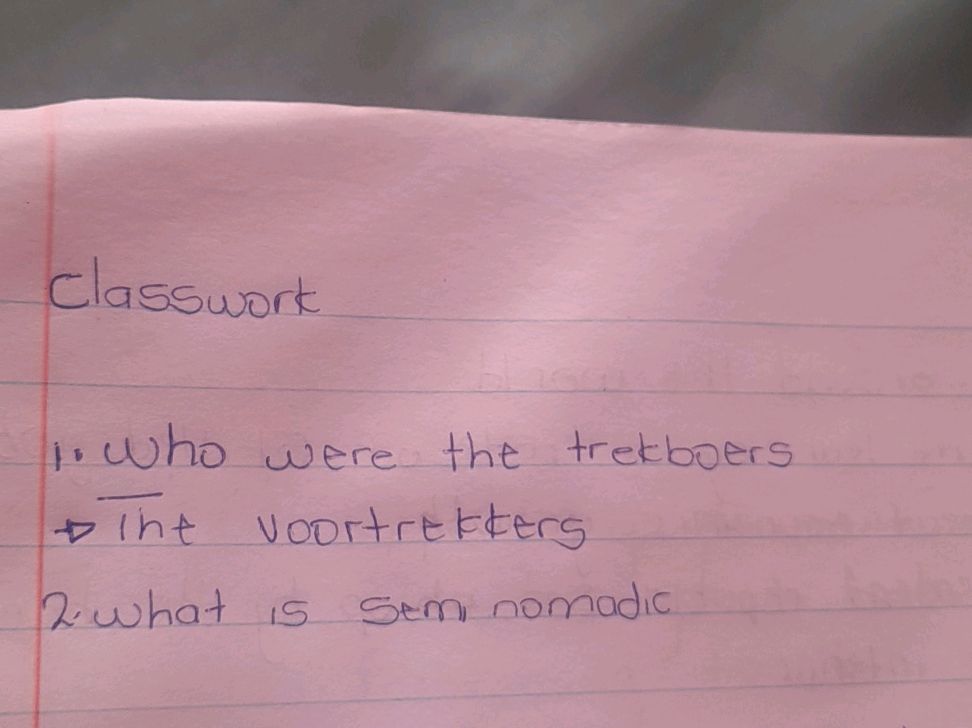 Classwork
1. Who were the trekboers
→ The voortrekkers
2. what is semi nomadic